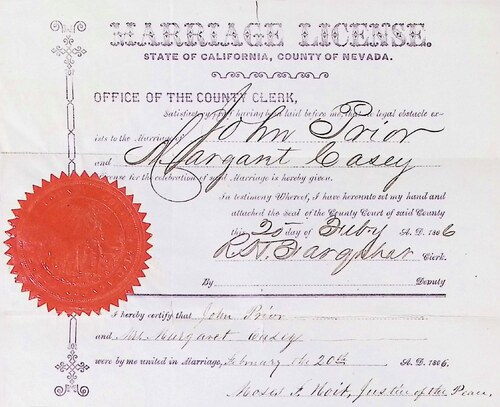 MARRIAGE LICENSE.
STATE OF CALIFORNIA, COUNTY OF NEVADA.
OFFICE OF THE COUNTY CLERK,
Satisfactory proof having been laid before me, that no legal obstacle ex-
ists to the Marriage of John Prior
and Margant Casey
License for the celebration of said Marriage is hereby given.
In testimony Whereof, I have hereunto set my hand and
attached the seal of the County Court of said County
this 20 day of Feby A. D. 1866
Clerk.
By Deputy
I hereby certify that John Prior
and Margaret Casey
were by me united in Marriage, February the 20th A. D. 1866.
Moses F. Hoit, Justice of the Peace,